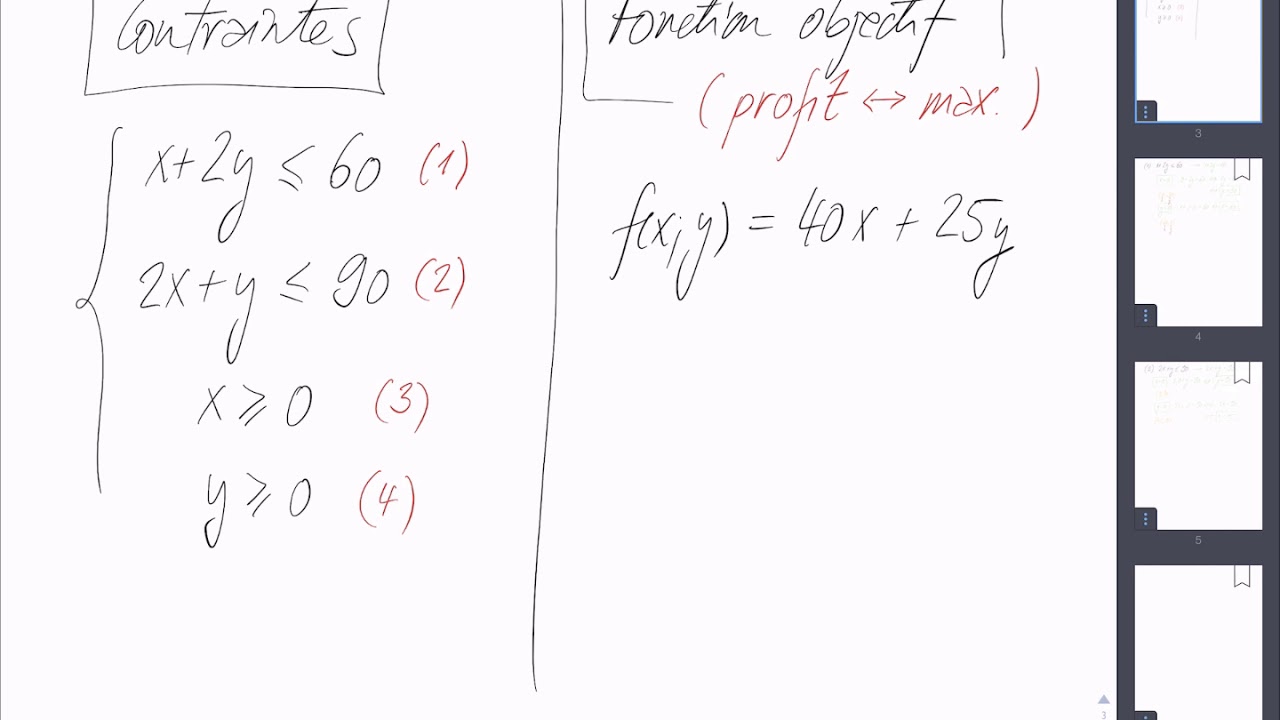 Contraintes
x+2y ≤ 60 (1)
2x+y ≤ 90 (2)
x ⩾ 0 (3)
y ⩾ 0 (4)
fonction objectif
(profit ↔ max.)
f(x;y) = 40x + 25y
3
4
5
3